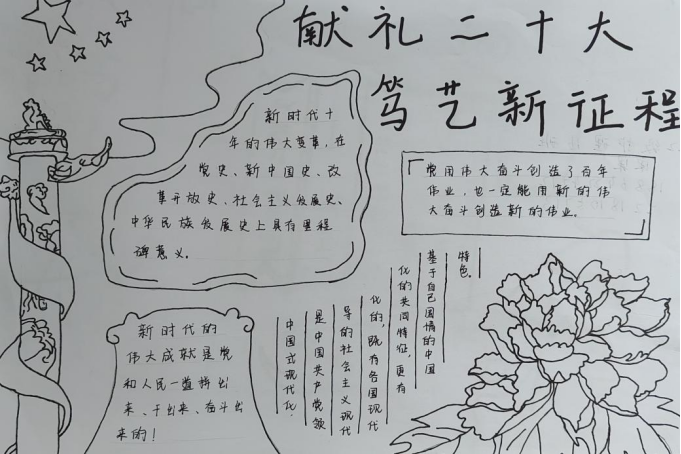 献礼二十大
笃艺新征程
新时代十
年的伟大变革,在
党史、新中国史、改
革开放史、社会主义发展史、
中华民族发展史上具有里程
碑意义。
党用伟大奋斗创造了百年
伟业,也一定能用新的伟
大奋斗创造新的伟业。
新时代的
伟大成就是党
和人民一道拼出
来、干出来、奋斗出
来的!
中国式现代化,
是中国共产党领
导的社会主义现代
化的,既有各国现代
化的共同特征,更有
基于自己国情的中国
特色。